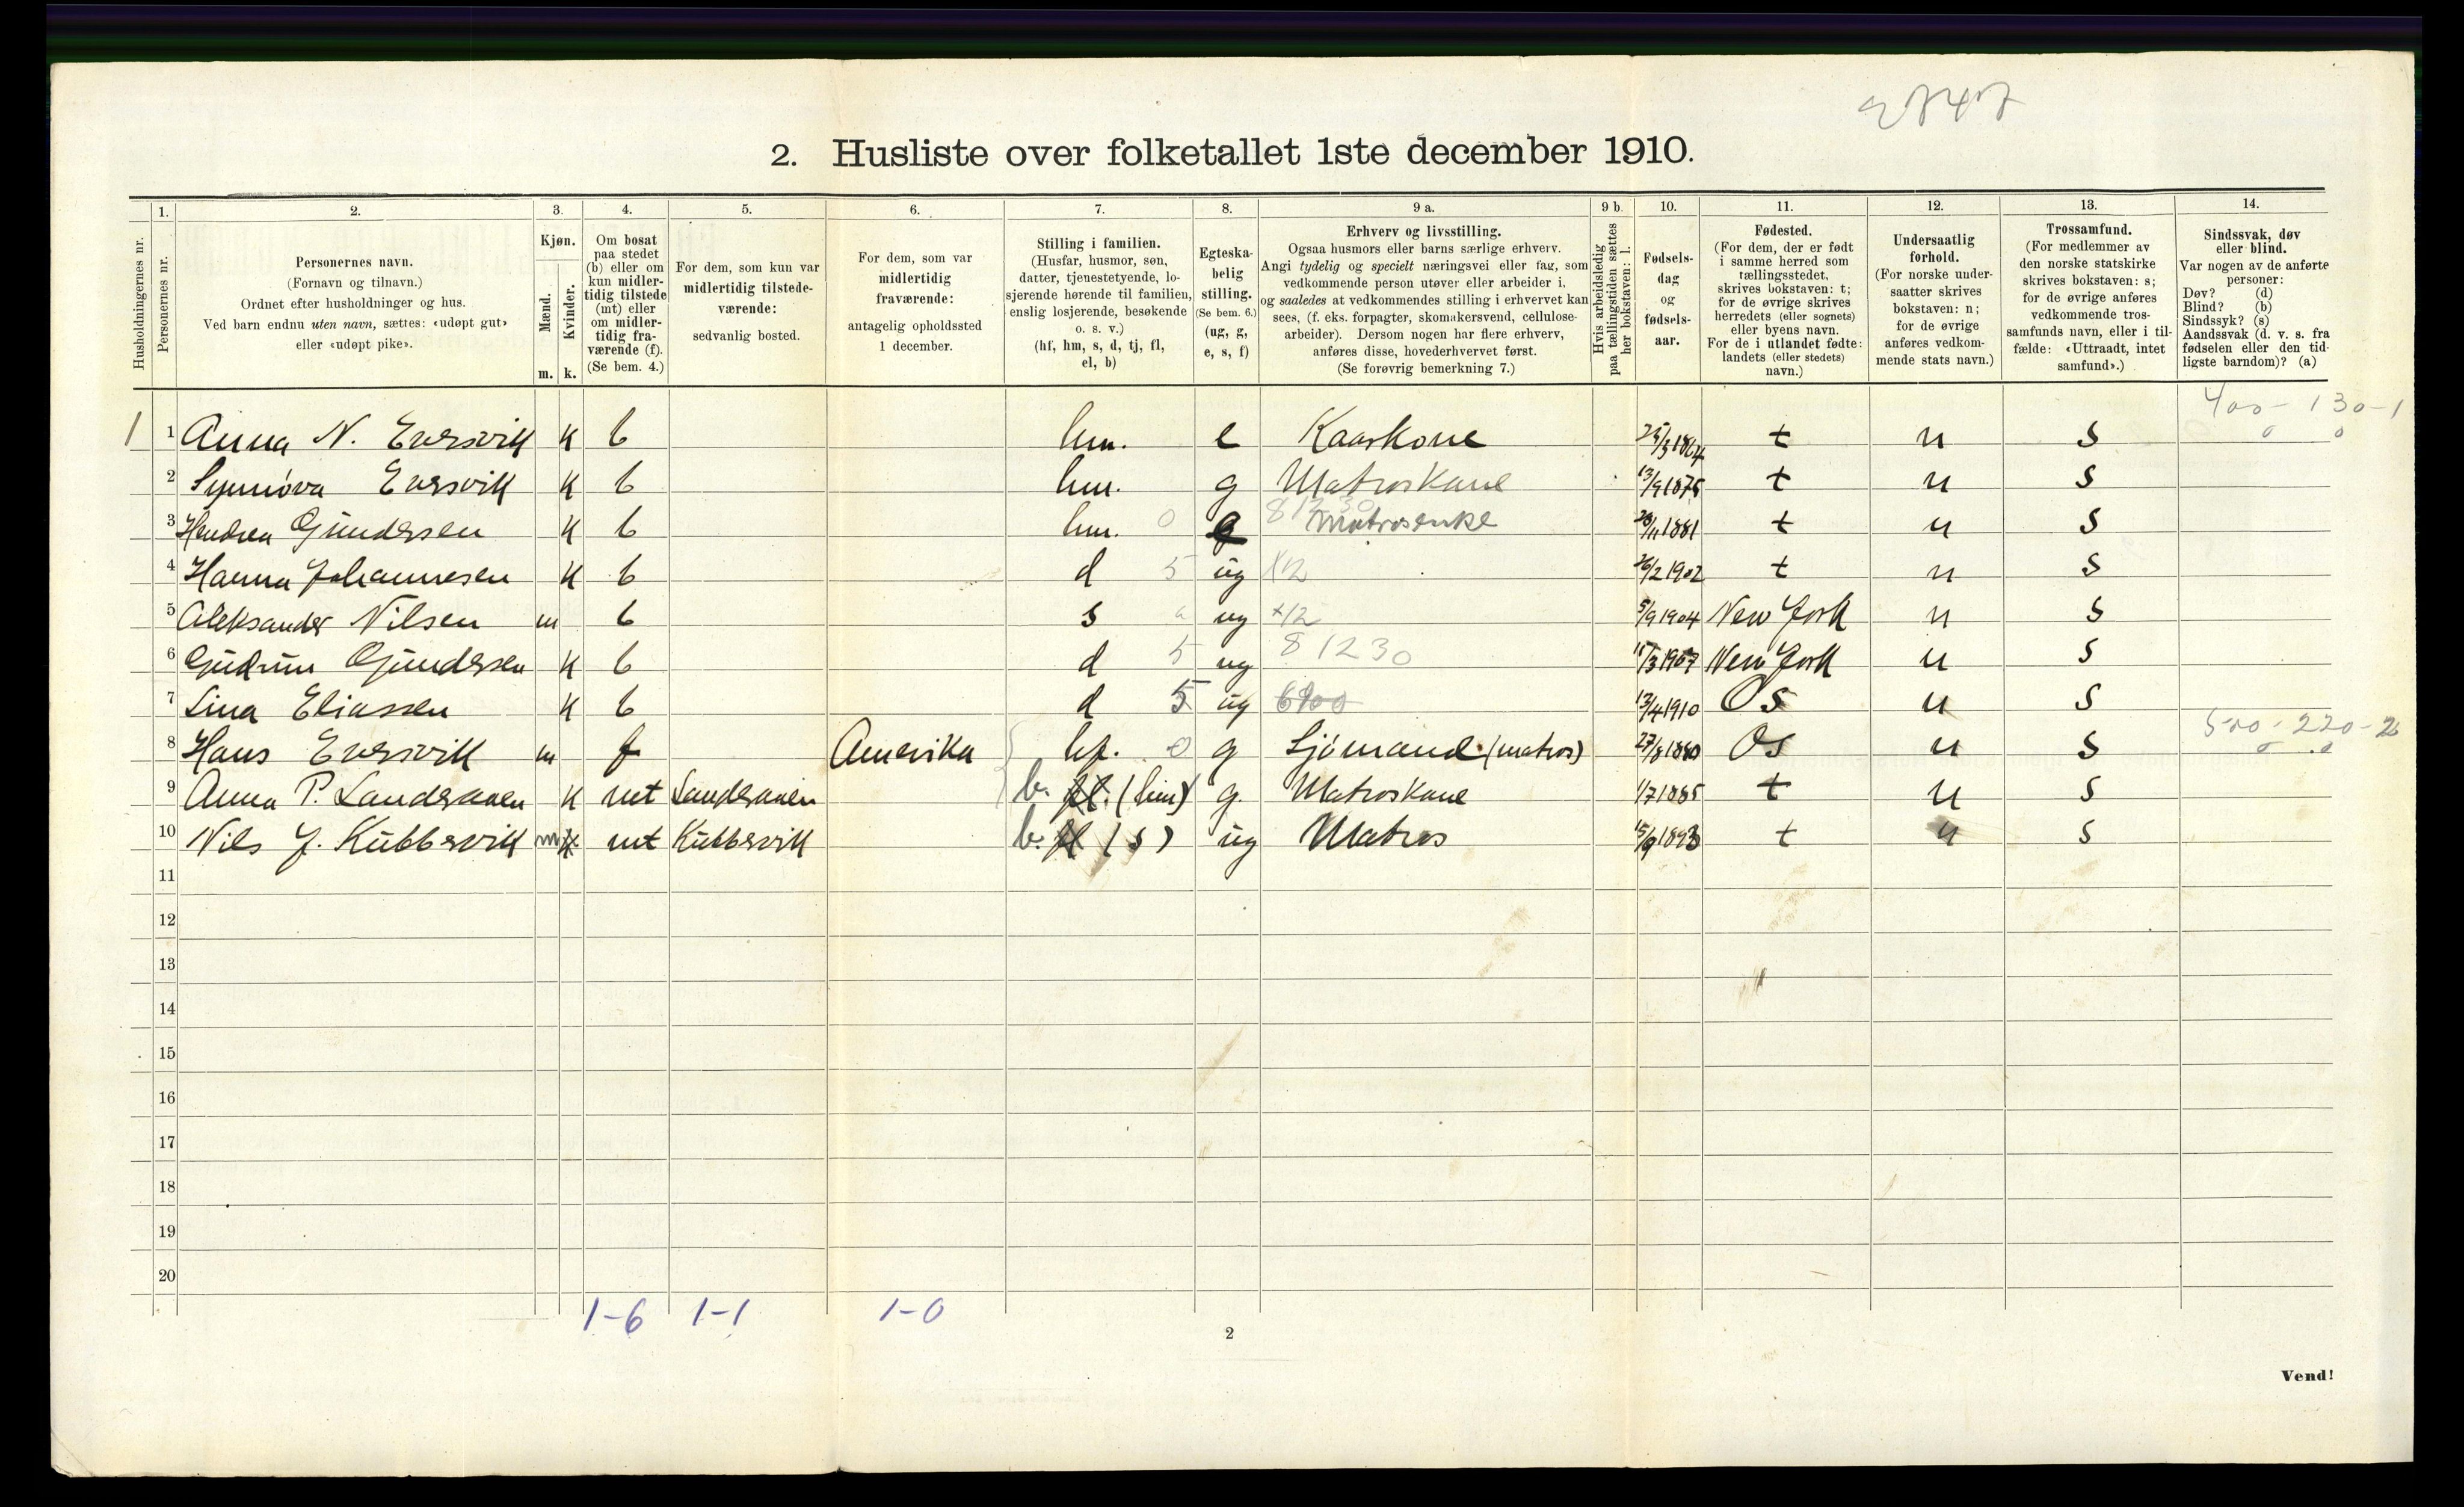 2747
2. Husliste over folketallet 1ste december 1910.
Husholdningernes nr.
1.
Personernes nr.
2.
Personernes navn.
(Fornavn og tilnavn.)
Ordnet efter husholdninger og hus.
Ved barn endnu uten navn, sættes: «udøpt gut»
eller «udøpt pike».
3.
Kjøn.
Mænd.
Kvinder.
m. k.
4.
Om bosat
paa stedet
(b) eller om
kun midler-
tidig tilstede
(mt) eller
om midler-
tidig fra-
værende (f).
(Se bem. 4.)
5.
For dem, som kun var
midlertidig tilstede-
værende:
sedvanlig bosted.
6.
For dem, som var
midlertidig
fraværende:
antagelig opholdssted
1 december.
7.
Stilling i familien.
(Husfar, husmor, søn,
datter, tjenestetyende, lo-
sjerende hørende til familien,
enslig losjerende, besøkende
o. s. v.)
(hf, hm, s, d, tj, fl,
el, b)
8.
Egteska-
belig
stilling.
(Se bem. 6.)
(ug, g,
e, s, f)
9 a.
Erhverv og livsstilling.
Ogsaa husmors eller barns særlige erhverv.
Angi tydelig og specielt næringsvei eller fag, som
vedkommende person utøver eller arbeider i,
og saaledes at vedkommendes stilling i erhvervet kan
sees, (f. eks. forpagter, skomakersvend, cellulose-
arbeider). Dersom nogen har flere erhverv,
anføres disse, hovederhvervet først.
(Se forøvrig bemerkning 7.)
9 b.
Hvis arbeidsledig
paa tællingstiden sættes
her bokstaven: l.
10.
Fødsels-
dag
og
fødsels-
aar.
11.
Fødested.
(For dem, der er født
i samme herred som
tællingsstedet,
skrives bokstaven: t;
for de øvrige skrives
herredets (eller sognets)
eller byens navn.
For de i utlandet fødte:
landets (eller stedets)
navn.)
12.
Undersaatlig
forhold.
(For norske under-
saatter skrives
bokstaven: n;
for de øvrige
anføres vedkom-
mende stats navn.)
13.
Trossamfund.
(For medlemmer av
den norske statskirke
skrives bokstaven: s;
for de øvrige anføres
vedkommende tros-
samfunds navn, eller i til-
fælde: «Uttraadt, intet
samfund».)
14.
Sindssvak, døv
eller blind.
Var nogen av de anførte
personer:
Døv? (d)
Blind? (b)
Sindssyk? (s)
Aandssvak (d. v. s. fra
fødselen eller den tid-
ligste barndom)? (a)
400 - 130 - 1
0 0
1 1 Anna N. Eversvik k b hm. e Kaarkone 25/3 1864 t n S
2 Synnóva Eversvik k b hm. g Matroskone 13/9 1875 t n S
3 Hendrea Gundersen k b hm. 0 e 81230 Matrosenke 28/11 1881 t n S
4 Hanna Johannesen k b d 5 ug x12 26/2 1902 t n S
5 Aleksander Nilsen m b s ug x12 5/9 1904 New York n S
6 Gudrun Gundersen k b d 5 ug 81230 15/3 1907 New York n S
7 Lina Eliassen k b d 5 ug 6900 13/4 1910 Os n S
500 - 220 - 2
8 Hans Eversvik m f Amerika hf. 0 g Sjómand (matros) 27/8 1880 Os n S
9 Anna P. Landeraaen k mt Landeraaen b. fl. (hm) g. Matroskone 1/7 1885 t n S
10 Nils J. Kubbervik m k mt Kubbervik b. fl (s) ug Matros 15/9 1893 t n S
11
12
13
14
15
16
17
18
19
20
1-6 1-1 1-0
2
Vend!